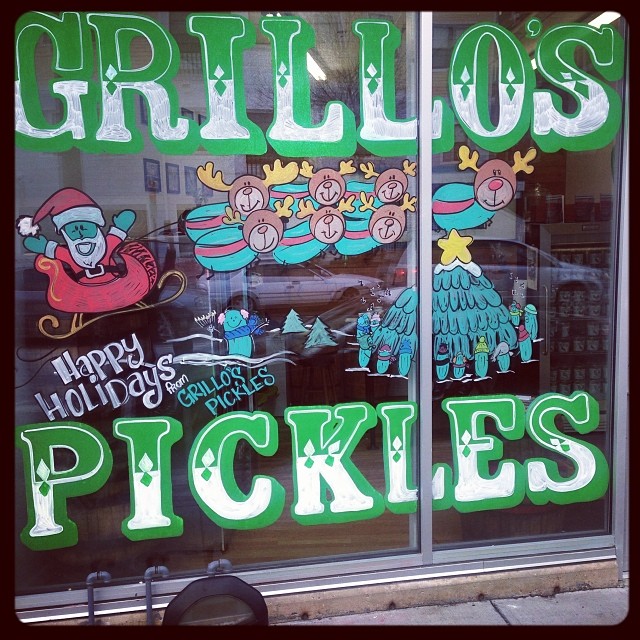 GRILLO'S
HAPPY
HOLIDAYS
FROM
GRILLO'S
PICKLES
PICKLES